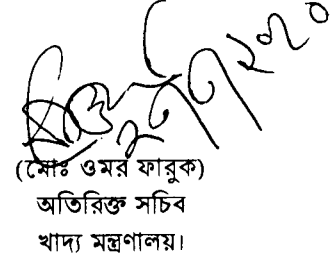 (মোঃ ওমর ফারুক)
অতিরিক্ত সচিব
খাদ্য মন্ত্রণালয়।